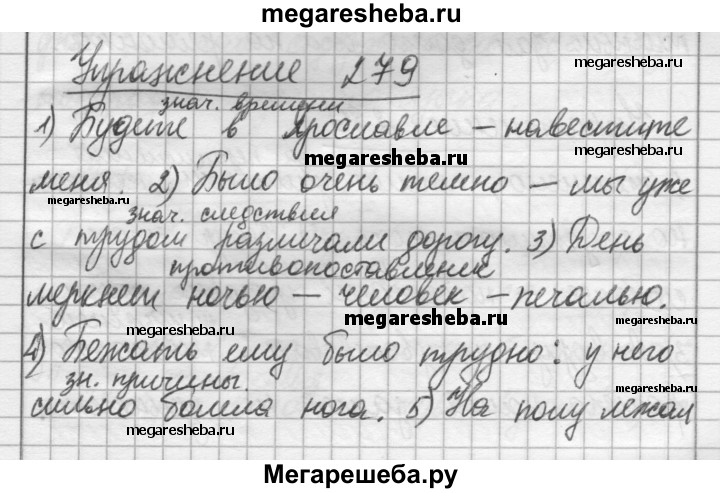 megaresheba.ru
Упражнение 279
megaresheba.ru
знач. времени
1) Будете в Ярославле – навестите
megaresheba.ru
megaresheba.ru
меня. 2) Было очень темно – мы уже
megaresheba.ru
megaresheba.ru
знач. следствия
с трудом различали дорогу. 3) День
противопоставление
меркнет ночью – человек – печалью.
megaresheba.ru
megaresheba.ru
4) Бежать ему было трудно: у него
зн. причины.
megaresheba.ru
сильно болела нога. 5) На полу лежал
megaresheba.ru
megaresheba.ru
Мегарешеба.ру